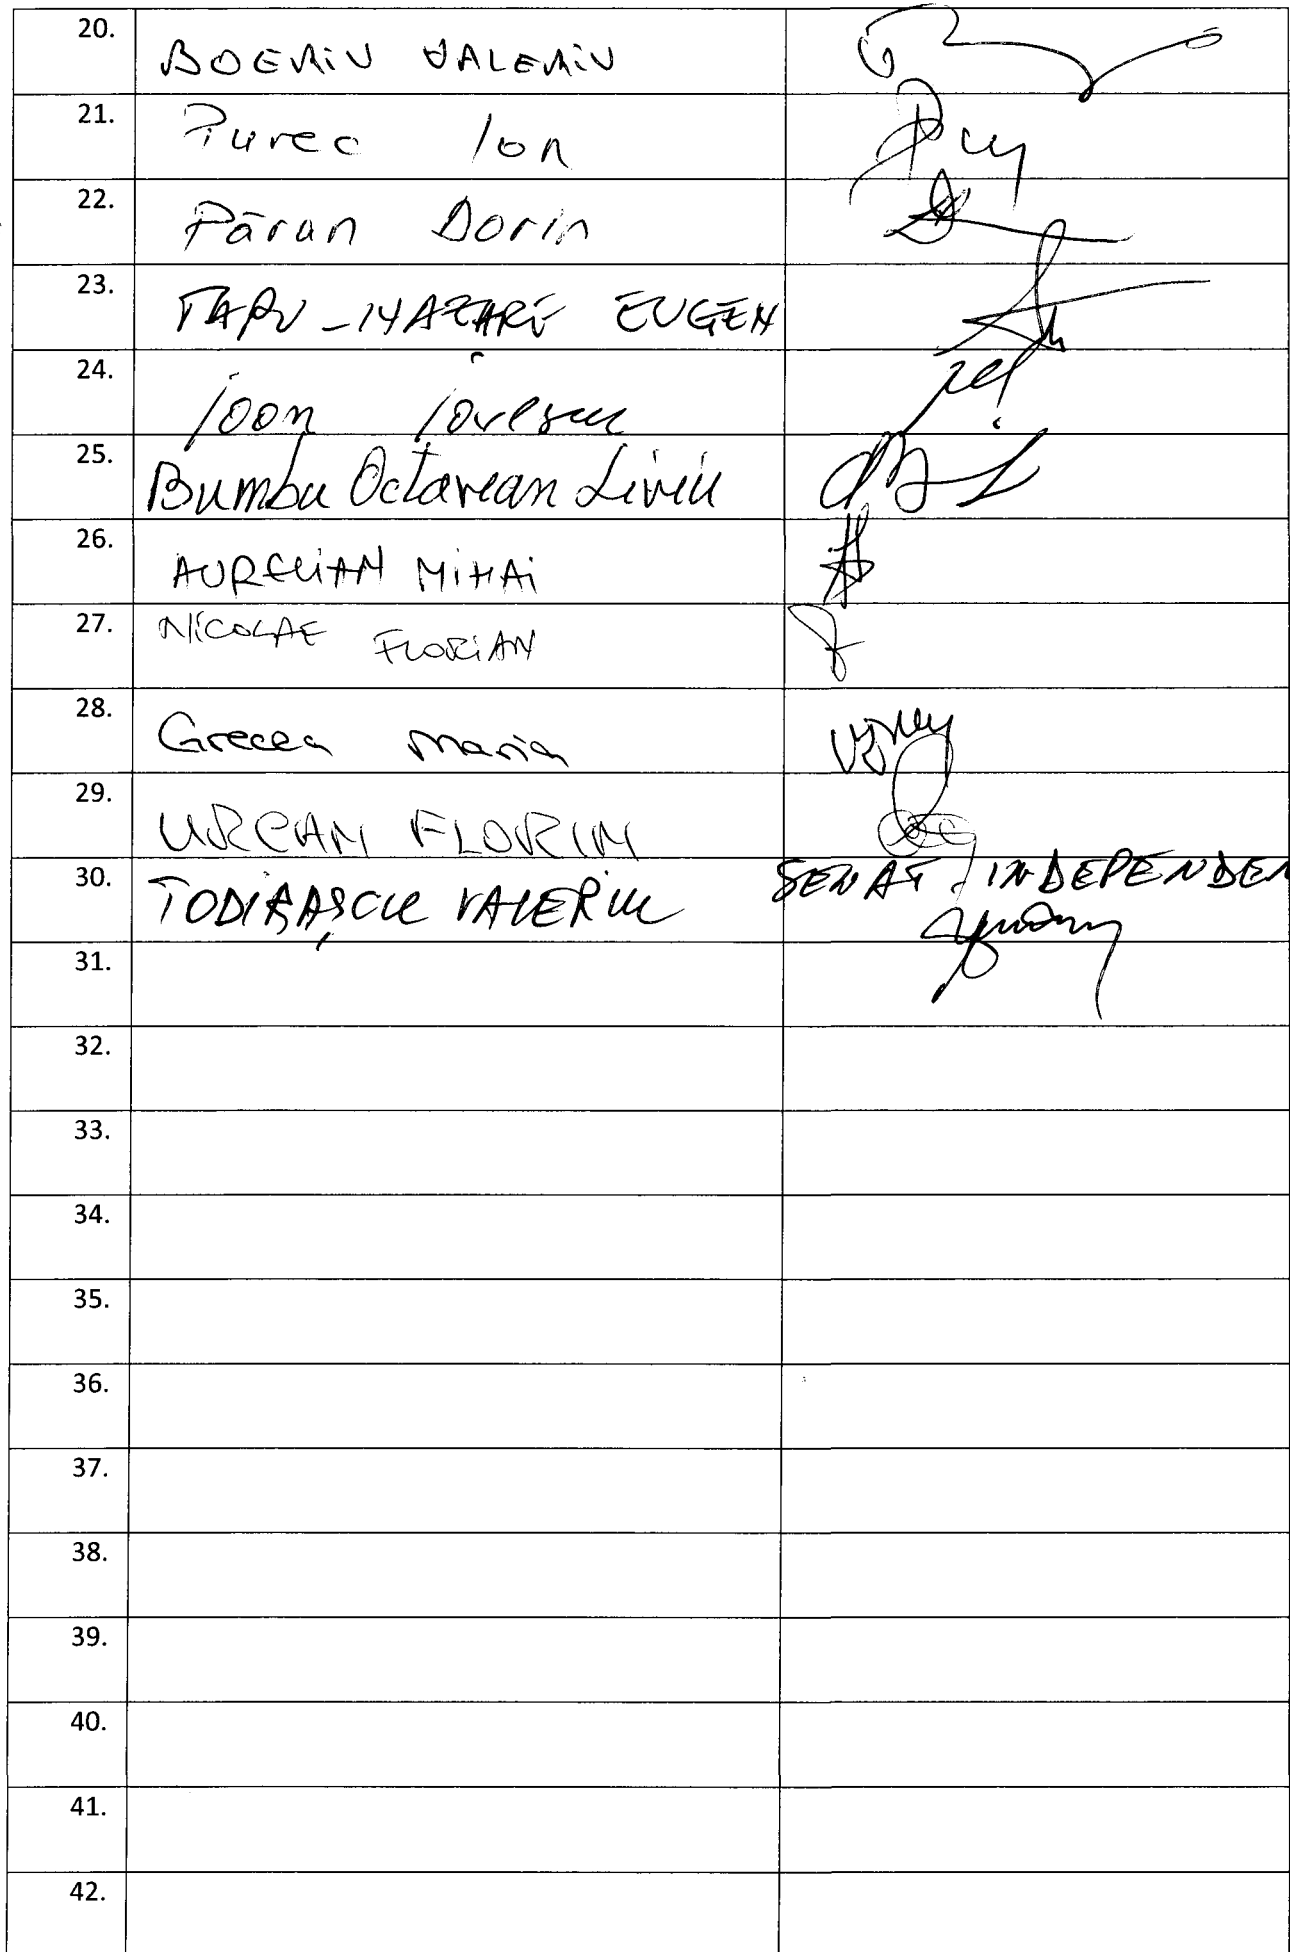 20. BOERIU VALERIU
21. Purec Ion
22. Păran Dorin
23. ȚAPU-NAZARE EUGEN
24. Ioan Iovescu
25. Bumbu Octavian Liviu
26. AURELIAN MIHAI
27. NICOLAE FLORIAN
28. Grecea Maria
29. URCAN FLORIN
30. TODIRAȘCU VALERIU SENAT. INDEPENDEN
31.
32.
33.
34.
35.
36.
37.
38.
39.
40.
41.
42.